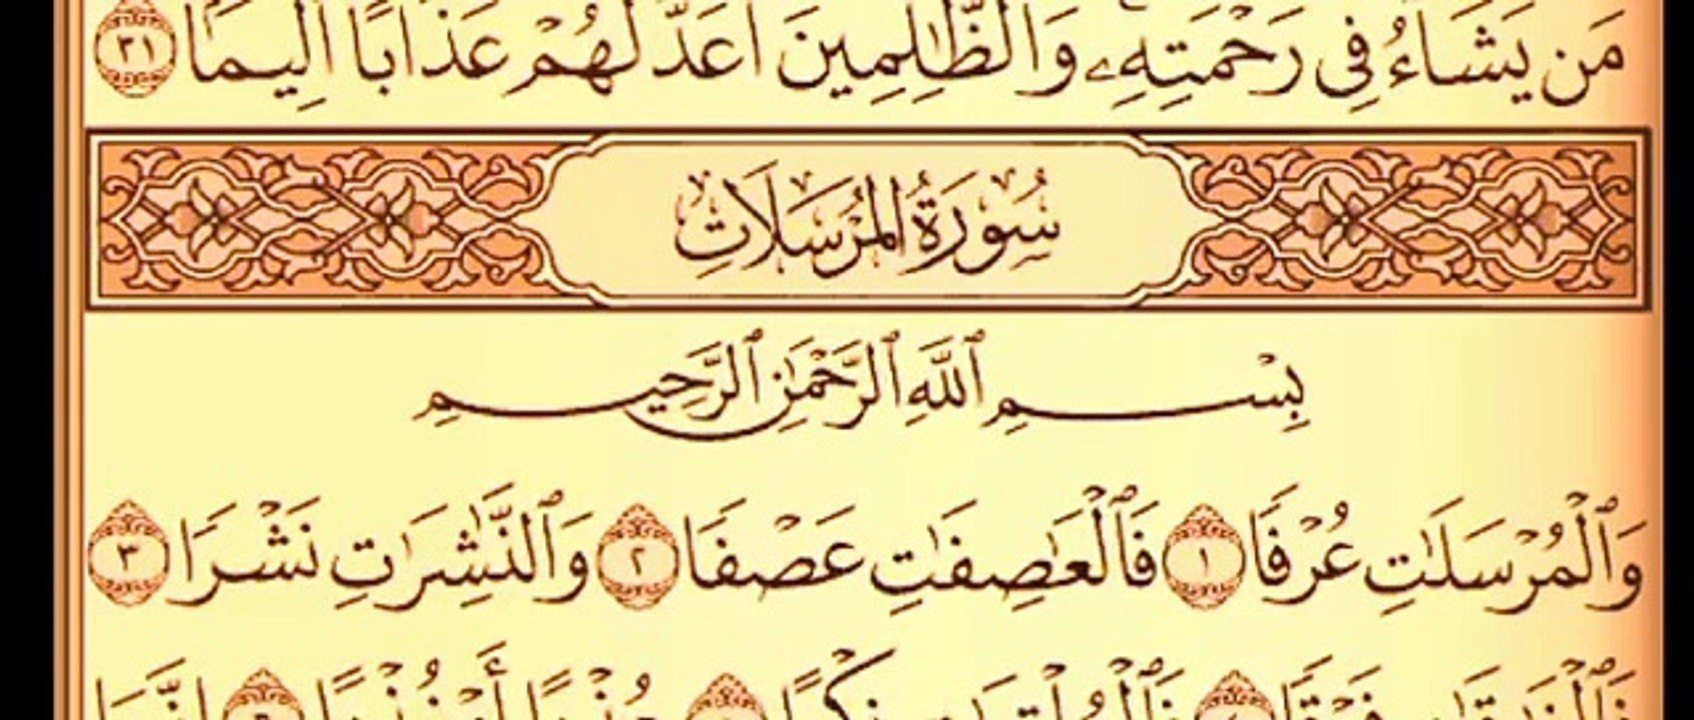 مَن يَشَآءُ فِى رَحْمَتِهِۦ وَٱلظَّـٰلِمِينَ أَعَدَّ لَهُمْ عَذَابًا أَلِيمًۢا ٣١
سُورَةُ المُرْسَلَاتِ
بِسْمِ ٱللَّهِ ٱلرَّحْمَـٰنِ ٱلرَّحِيمِ
وَٱلْمُرْسَلَـٰتِ عُرْفًا ١ فَٱلْعَـٰصِفَـٰتِ عَصْفًا ٢ وَٱلنَّـٰشِرَٰتِ نَشْرًا ٣